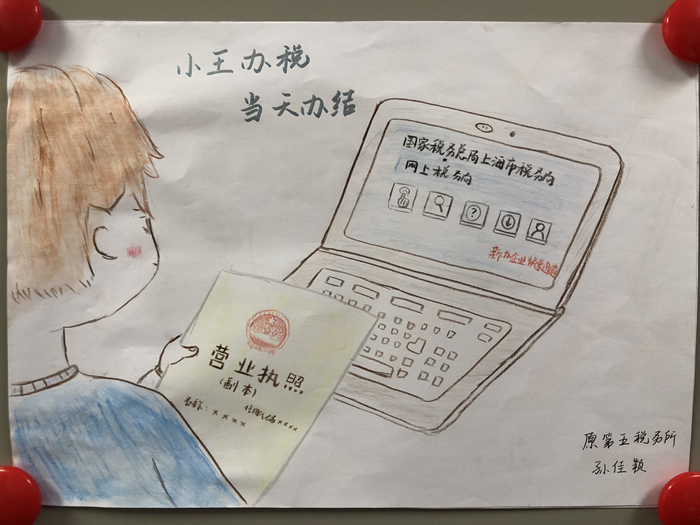 小王办税
当天办结
国家税务总局上海市税务局
网上税务局
?
新办企业快速通道
营业执照
(副本)
名称:xxxx
xxxx
原第五税务所
孙佳颖